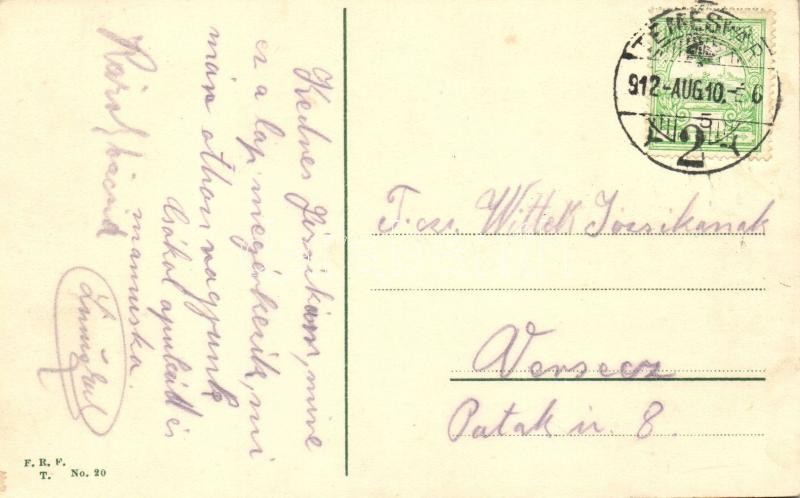 Kedves Józsikám, mire
ez a lap megérkezik, mi
már othon vagyunk
Csókol apukád és
mamuska.
F. R. F.
T. No. 20
TEMESVÁR
912-AUG.10.
2
5
T. cz. Wittek Józsikának
Versecz
Patak u. 8.